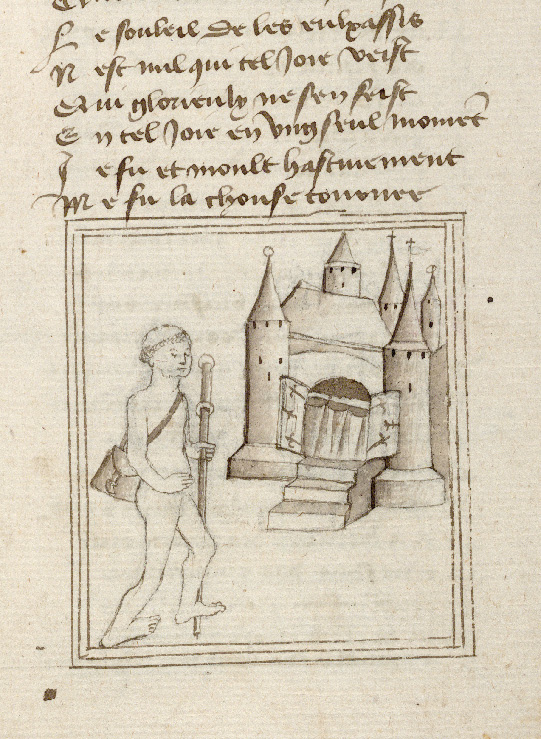 L e souleil de les eulx assis
N est nul qui tel Joie veist
Q ui glorieulx ne sen feist
E n tel Joie en ung seul moment
J e fu et moult hastiuement
M e fu la chouse tournee